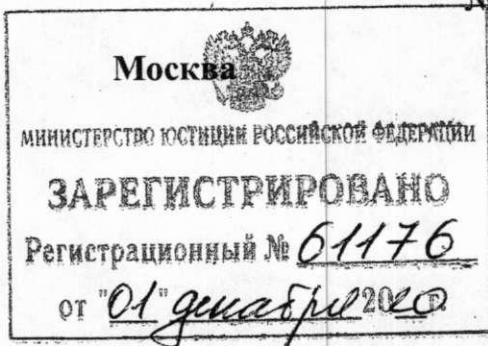 Москва
МИНИСТЕРСТВО ЮСТИЦИИ РОССИЙСКОЙ ФЕДЕРАЦИИ
ЗАРЕГИСТРИРОВАНО
Регистрационный № 61176
от "01" декабря 2020 г.